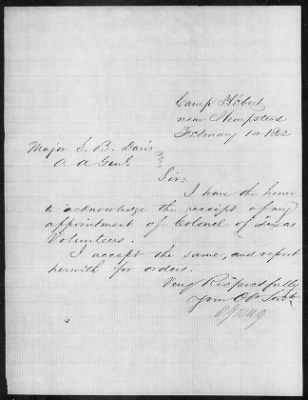 Camp Hébert
near Hempstead
February 1st 1862
Major S. B. Davis
A A Genl.
Sir:
I have the honor
to acknowledge the receipt of my
appointment of Colonel of Texas
Volunteers.
I accept the same, and report
herewith for orders.
Very Respectfully
Your Obt Servt